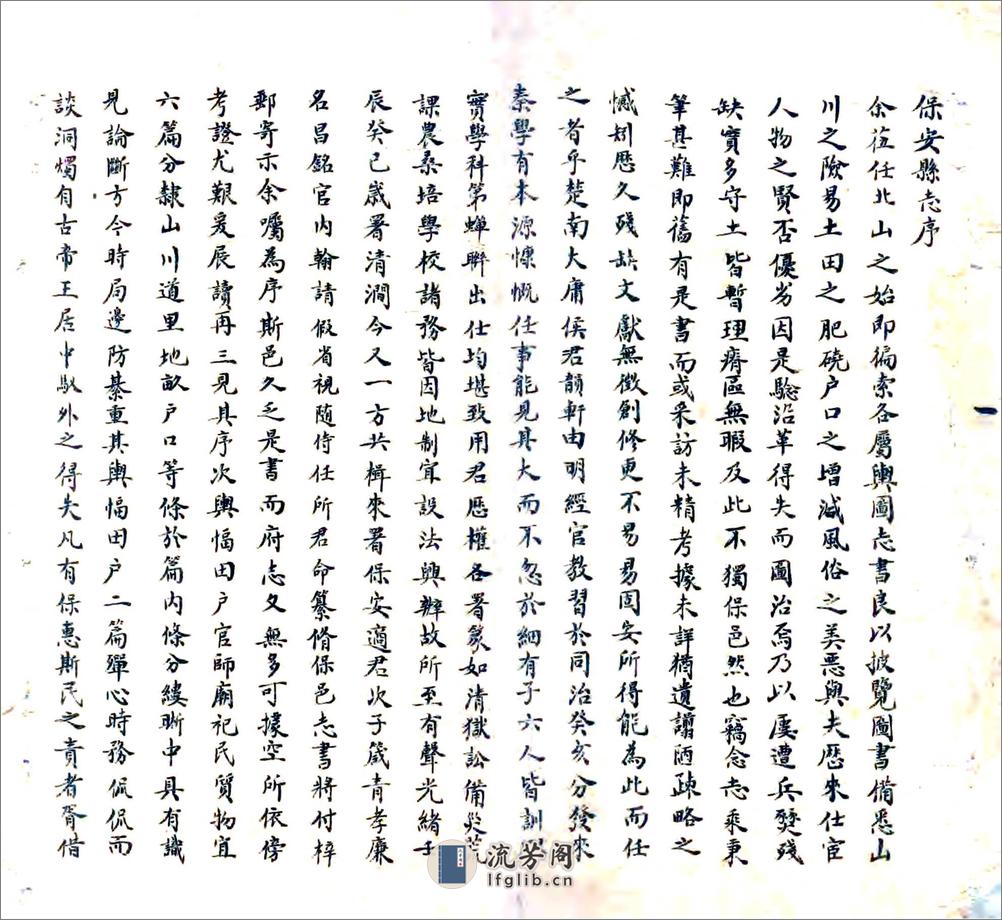 保安縣志序
余莅任北山之始即徧索各屬輿圖志書良以披覽圖書備悉山
川之險易土田之肥磽户口之增減風俗之美惡與夫歷來仕宦
人物之賢否優劣因是騐沿革得失而圖治焉乃以屢遭兵燹殘
缺實多守土皆暫理瘠區無暇及此不獨保邑然也竊念志乘秉
筆甚難即舊有是書而或采訪未精考據未詳猶遺譾陋疎略之
憾矧歷久殘缺文獻無徵創修更不易易固安所得能為此而任
之者乎楚南大庸侯君韻軒由明經官教習於同治癸亥分發來
秦學有本源慷慨任事能見其大而不忽於細有子六人皆訓以
實學科第蟬聯出仕均堪致用君歷權各署篆如清獄訟備災荒
課農桑培學校諸務皆因地制宜設法興辦故所至有聲光緒
辰癸巳歲署清澗今又一方共楫來署保安適君次子箴青孝廉
名昌銘官内翰請假省視隨侍任所君命纂脩保邑志書將付梓
郵寄示余囑為序斯邑久乏是書而府志又無多可據空所依傍
考證尤艱爰展讀再三見其序次輿幅田户官師廟祀民質物宜
六篇分隸山川道里地畝户口等條於篇内條分縷晰中具有識
見論斷方今時局邊防綦重其輿幅田户二篇殫心時務侃侃而
談洞燭自古帝王居中馭外之得失凡有保惠斯民之責者胥借
流芳阁
lfglib.cn